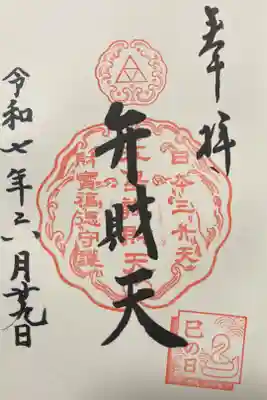 奉拝
日本三弁天
弁財天
財寶福徳守護
令和七年六月廿九日
巳の日